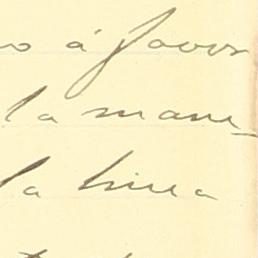 o á favor
la man_
la linea